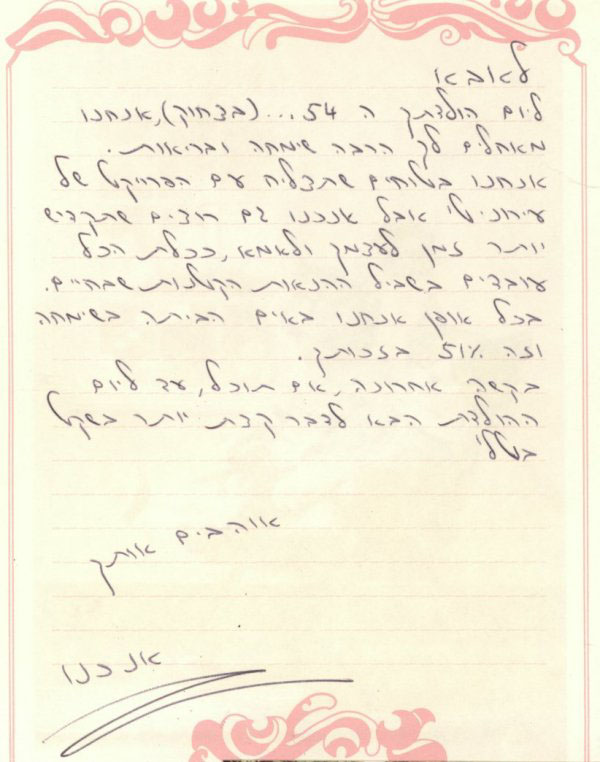 לאובא
ליום הולדתך ה 54... (בצחוק), אנחנו
מאחלים לך הרבה שימחה ובריאות.
אנחנו בטוחים שתצליח עם הפרוייקט של
עירוני ט' אבל אנכנו גם רוצים שתקדיש
יותר זמן לעצמך ולאמא, ככלות הכל
עובדים בשביל ההנאות הקטנות שבחיים.
בכל אופן אנחנו באים הביתה בשימחה
וזה 51% בזכותך.
בקשה אחרונה, אם תוכל, עד ליום
ההולדת הבא לדבר קצת יותר בשקט
בטלי
אוהבים אותך
אנכנו